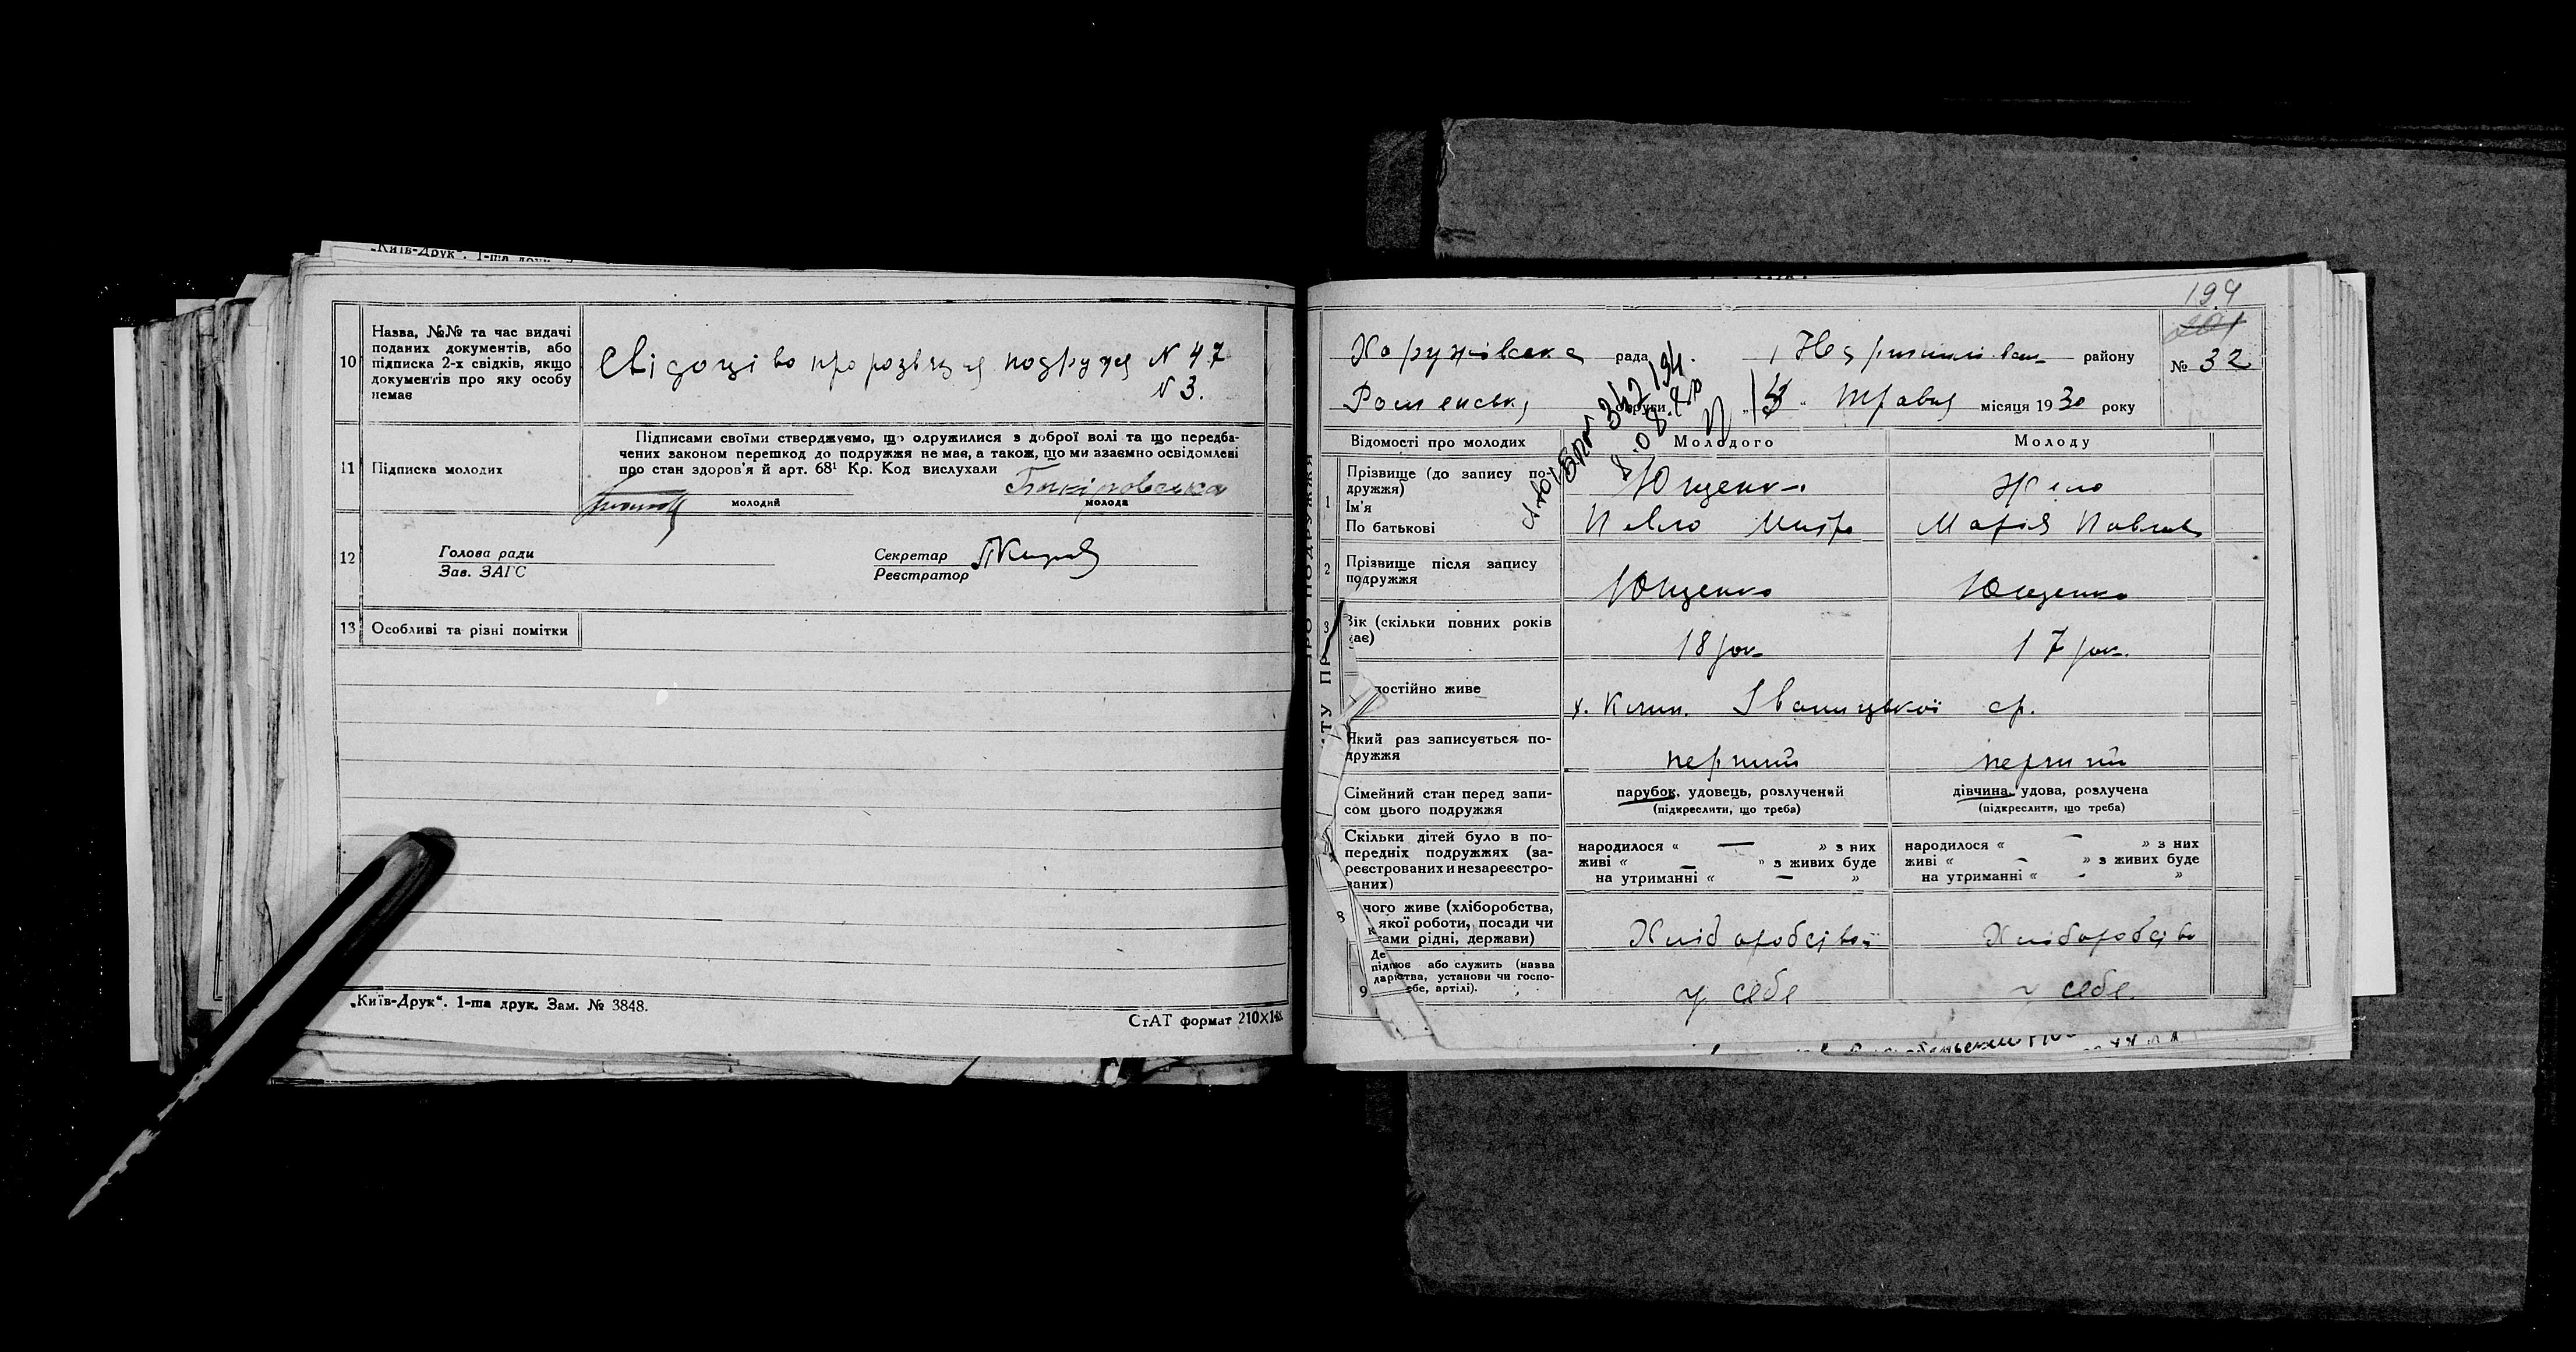 „Київ-Друк". 1-ша друк.
10
Назва, №№ та час видачі
поданих документів, або
підписка 2-х свідків, якщо
документів про яку особу
немає
Свідоцтво про розвязця подружжя N 47
N 3.
11
Підписка молодих
Підписами своїми стверджуємо, що одружилися з доброї волі та що передба-
чених законом перешкод до подружжя не має, а також, що ми взаємно освідомлені
про стан здоров'я й арт. 68¹ Кр. Код вислухали
молодий
молода
12
Голова ради
Зав. ЗАГС
Секретар
Реєстратор
13
Особливі та різні помітки
„Київ-Друк". 1-ша друк. Зам. № 3848.
СтАТ формат 210X148
194
201
Хоружівська рада Недригайлівськ району
№ 32
Роменськ округи 3 Травня місяця 1930 року
Відомості про молодих
Молодого
Молоду
1
Прізвище (до запису по-
дружжя)
Ім'я
По батькові
Ющенко
Павло Митр
Жило
Марія Павлов
2
Прізвище після запису
подружжя
Ющенко
Ющенко
3
Вік (скільки повних років
має)
18 рок
17 рок.
постійно живе
х. Іваницької ср.
Який раз записується по-
дружжя
перший
перший
Сімейний стан перед запи-
сом цього подружжя
парубок, удовець, розлучений
(підкреслити, що треба)
дівчина, удова, розлучена
(підкреслити, що треба)
Скільки дітей було в по-
передніх подружжях (за-
реєстрованих и незареєстро-
ваних)
народилося « — » з них
живі « — » з живих буде
на утриманні « — »
народилося « — » з них
живі « — » з живих буде
на утриманні « - »
8
чого живе (хліборобства,
якої роботи, посади чи
тами рідні, держави)
Хліборобство
Хліборобство
9
або служить (назва
установи чи госпо-
ебе, артілі).
у себе
у себе